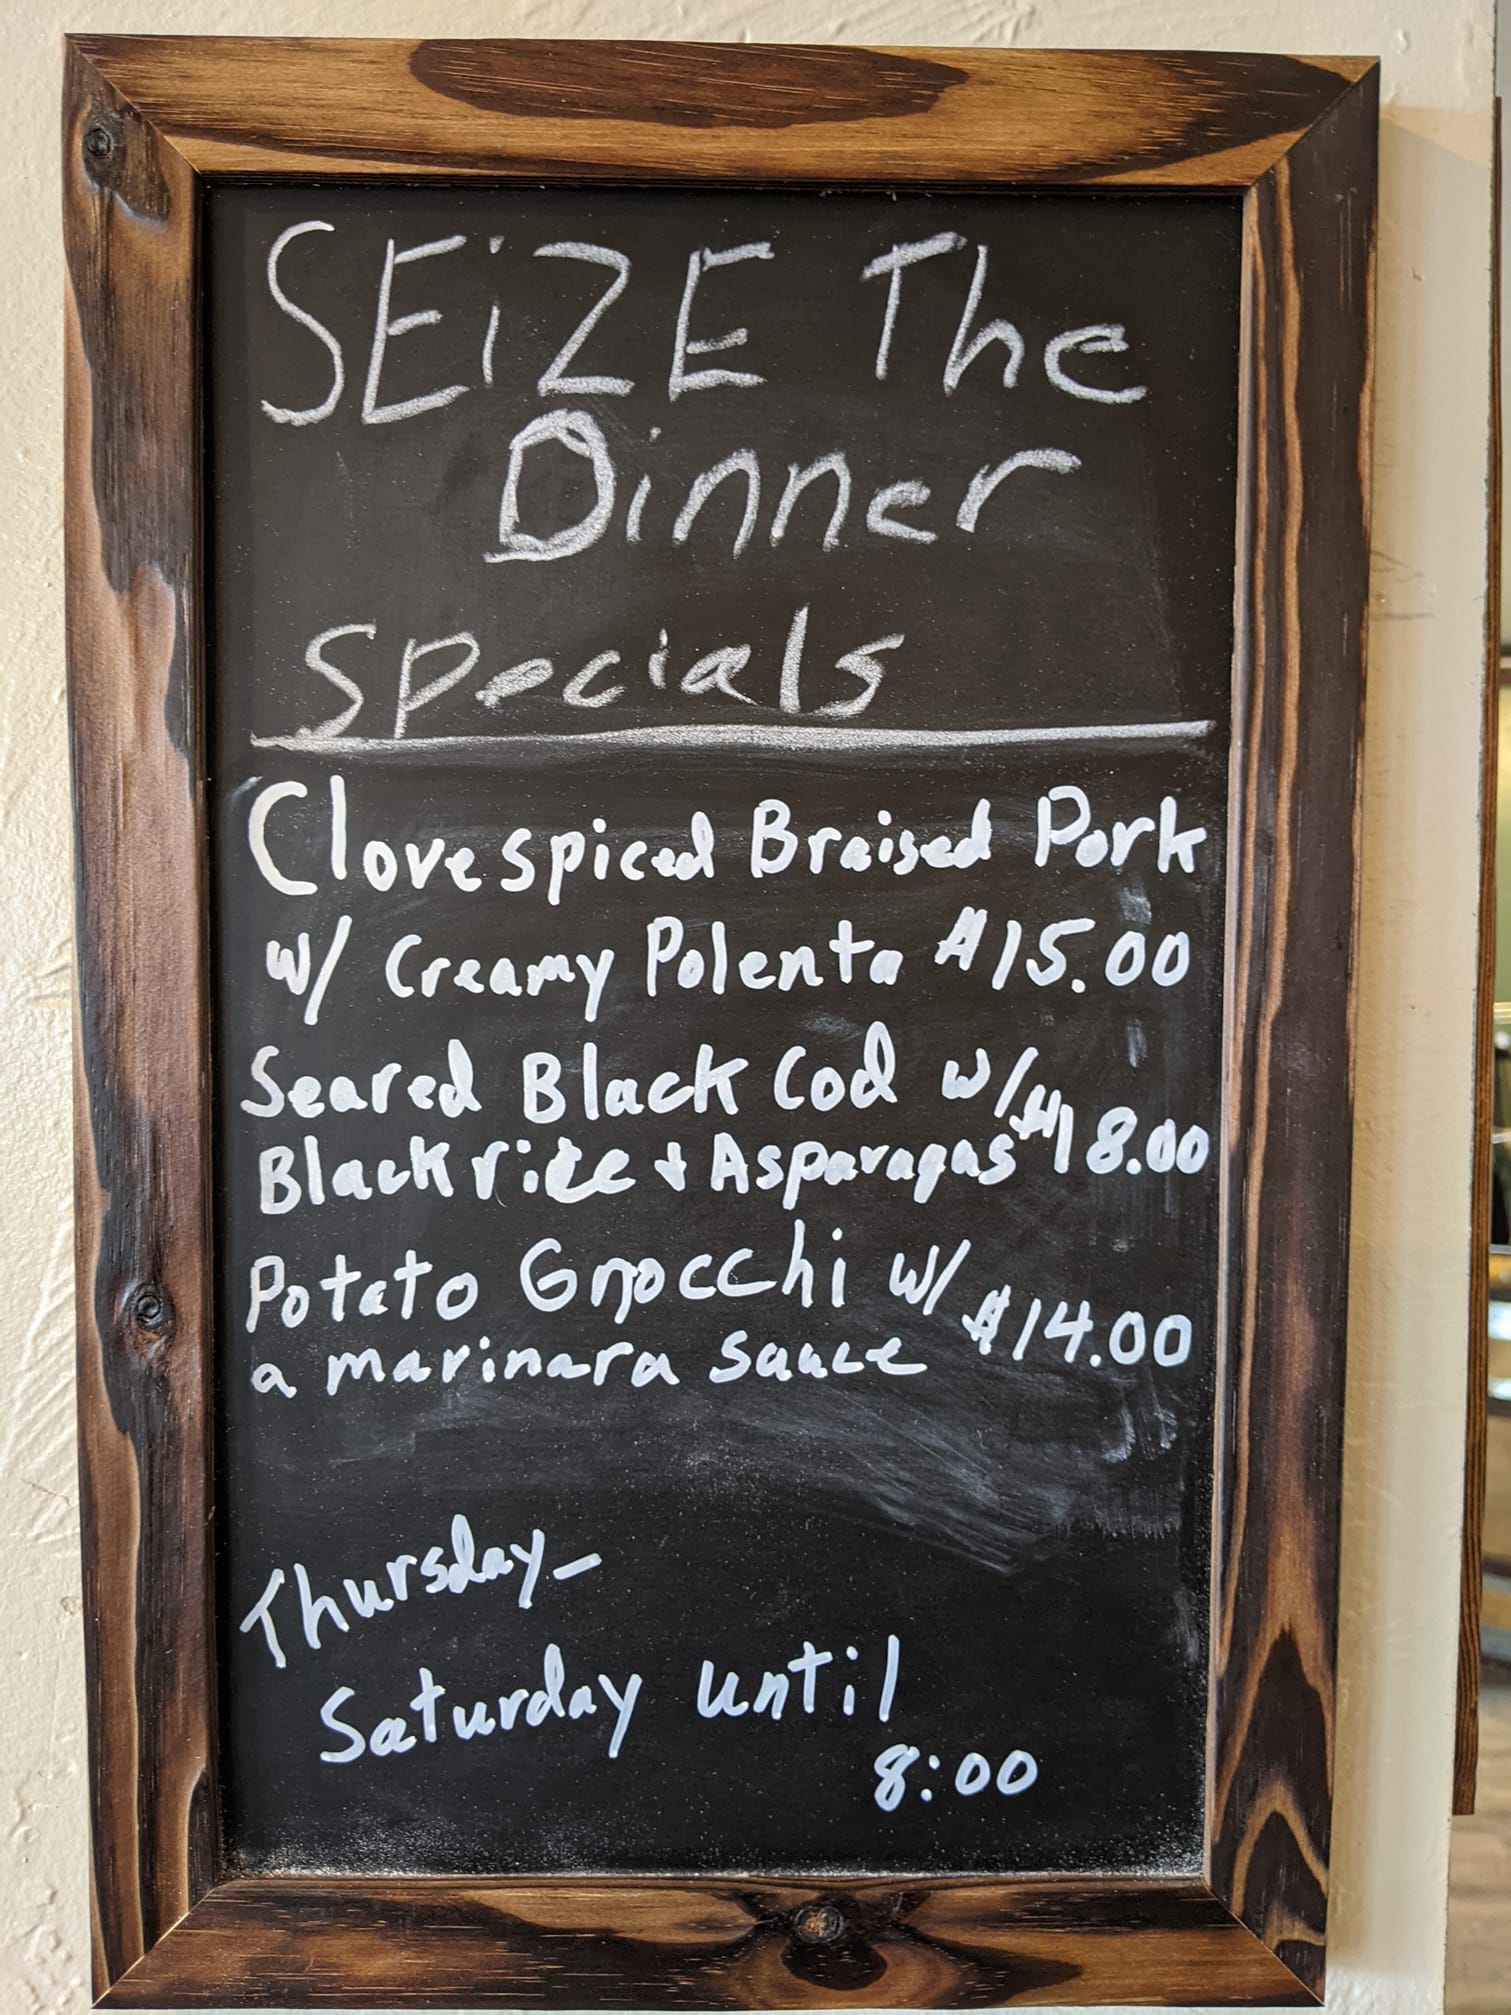 SEiZE The
Dinner
Specials
Clove spiced Braised Pork
w/ Creamy Polenta $15.00
Seared Black Cod w/
Black rice + Asparagas $18.00
Potato Gnocchi w/
a marinara sauce $14.00
Thursday-
Saturday until
8:00